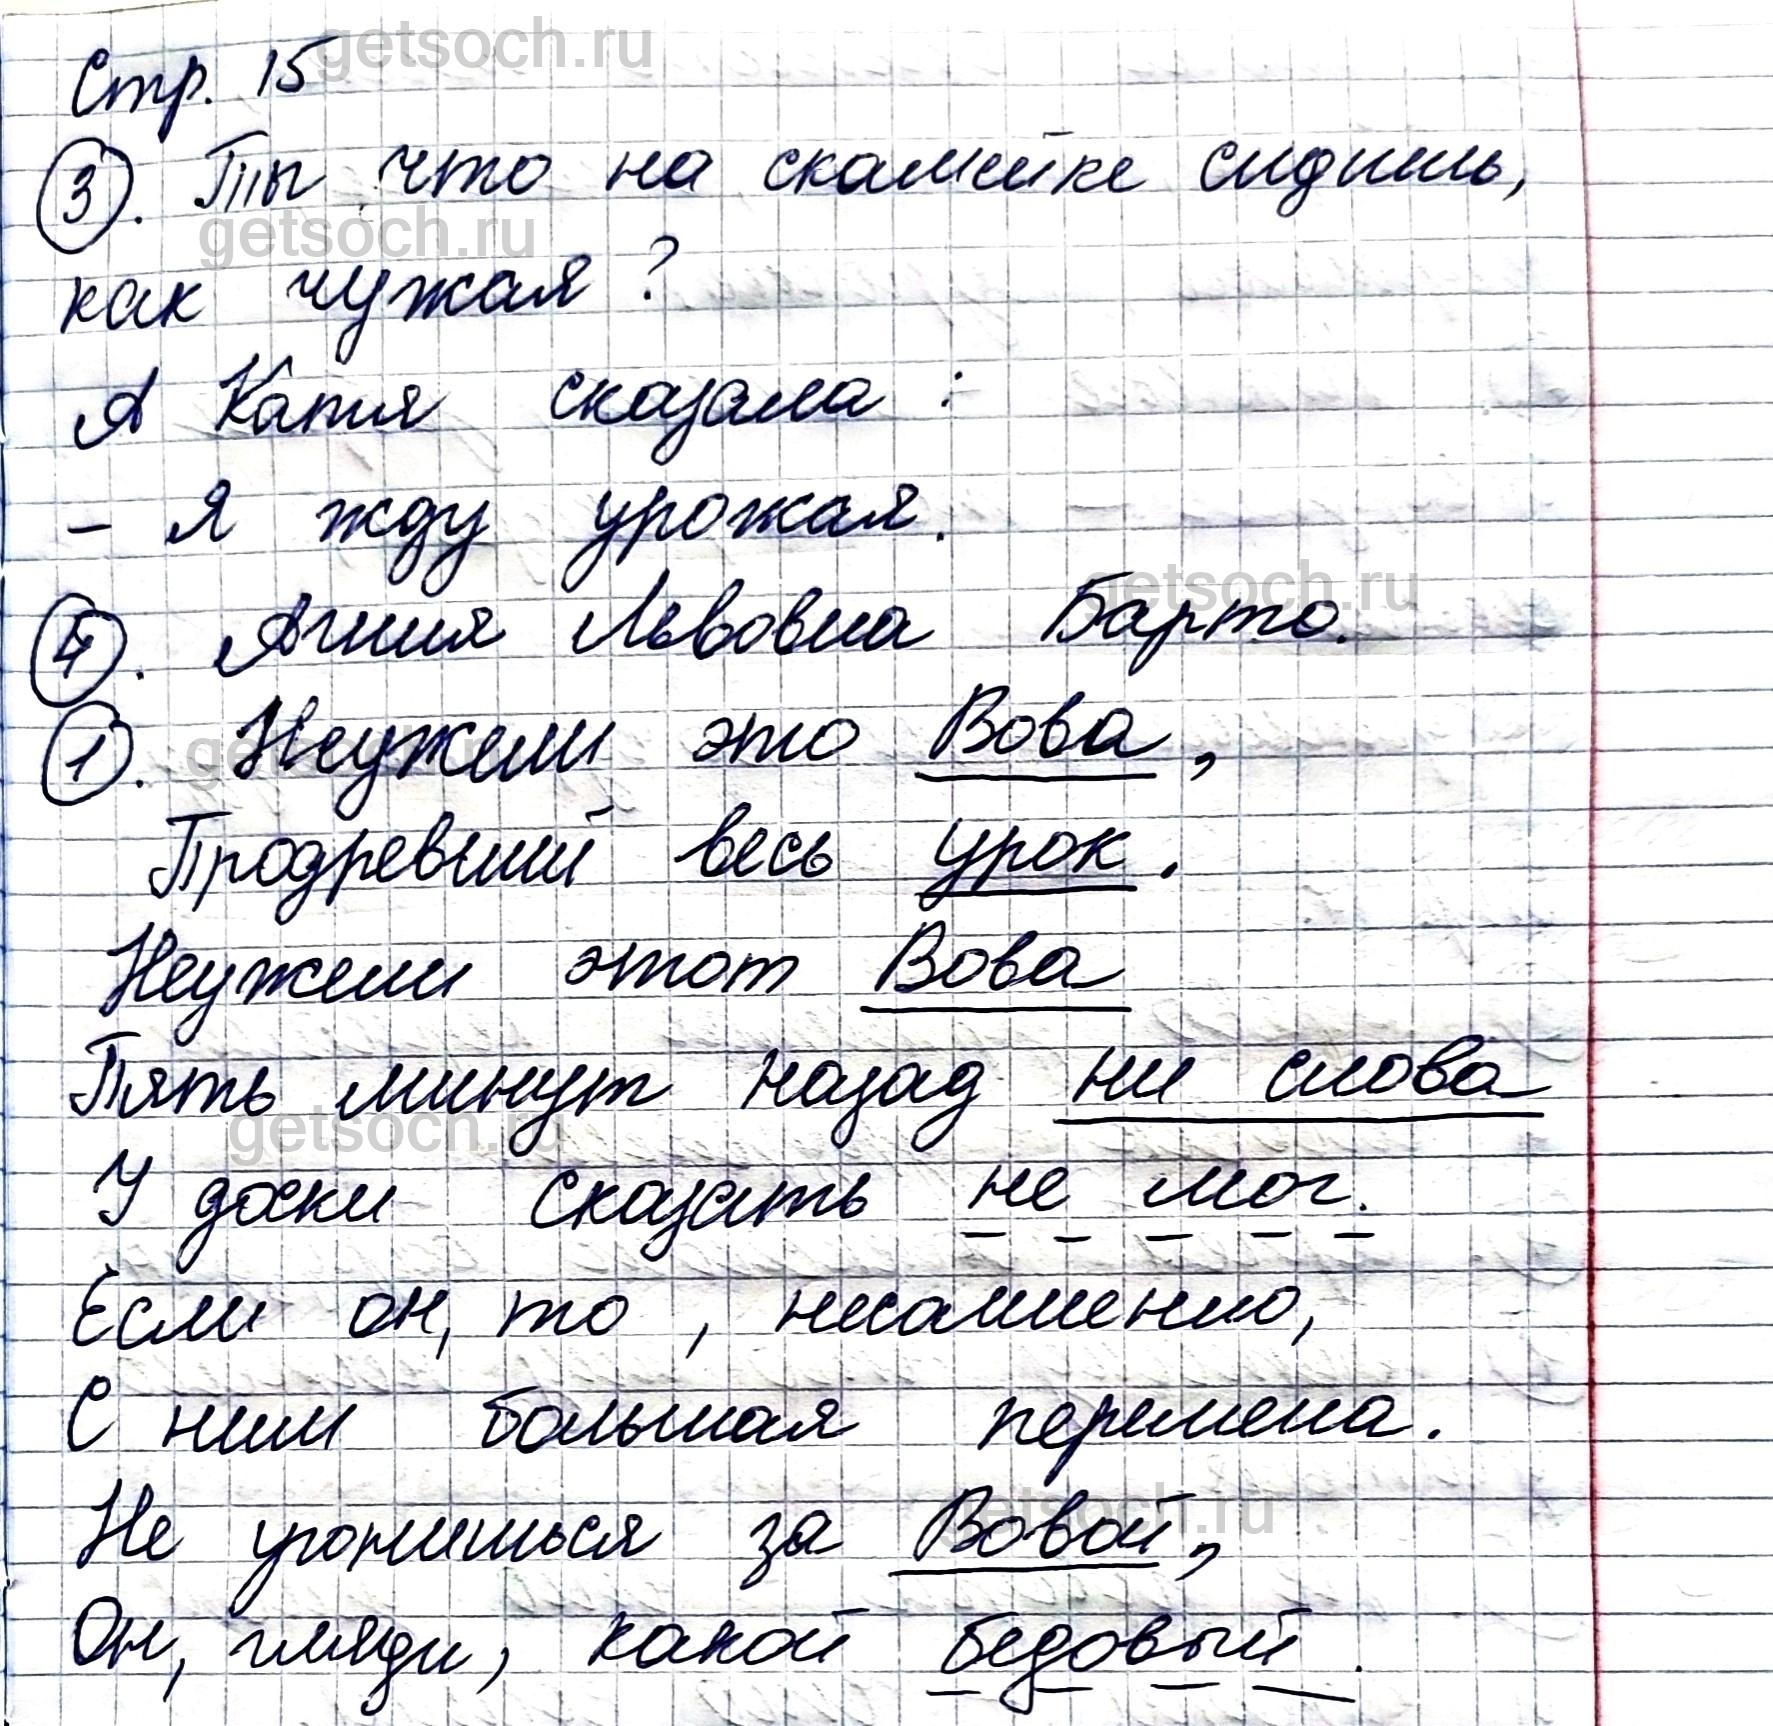 getsoch.ru
Стр. 15
3. Ты что на скамейке сидишь,
getsoch.ru
как чужая?
А Катя сказала:
- Я жду урожая.
getsoch.ru
4. Агния Львовна Барто.
1. Неужели это Вова,
getsoch.ru
Продревший весь урок.
Неужели этот Вова
Пять минут назад ни слова
getsoch.ru
У доски сказать не мог.
Если он, то, несомненно,
С ним большая перемена.
Не угонишься за Вовой,
getsoch.ru
Он, гляди, какой бедовый.